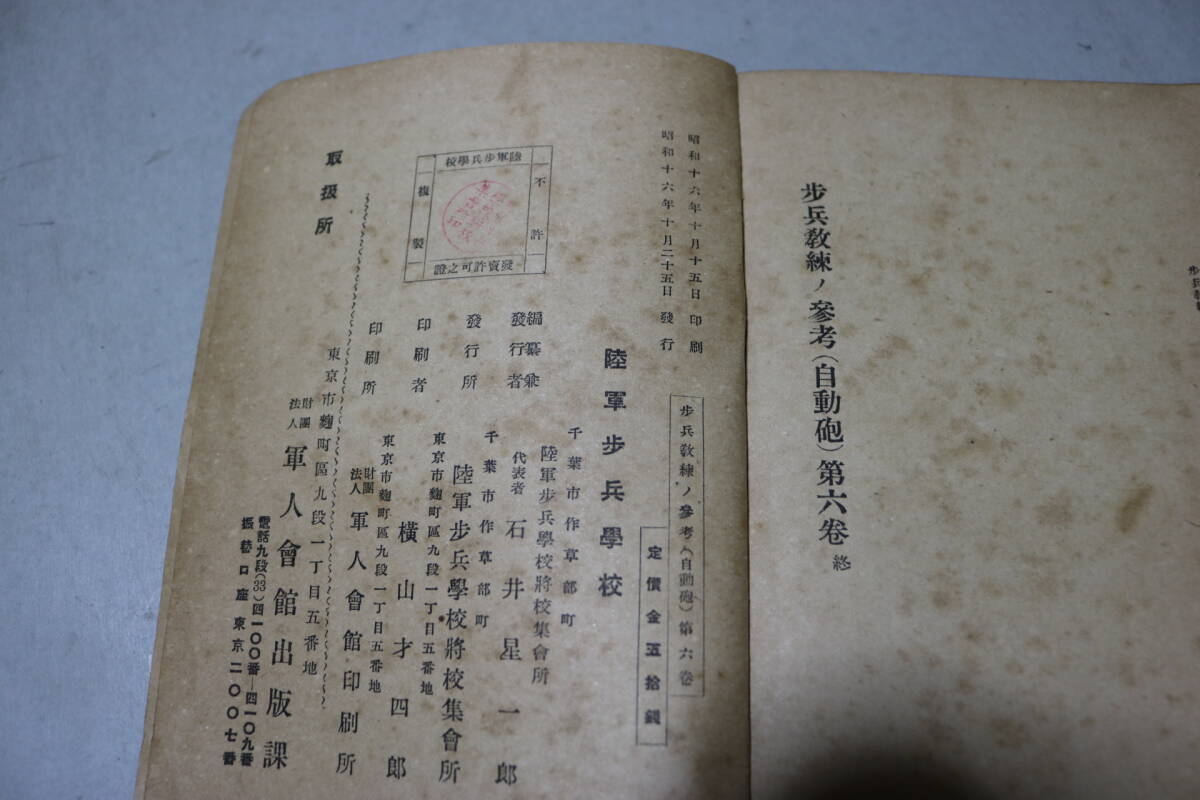 歩兵教練ノ參考(自動砲)第六卷 終
昭和十六年十月十五日印刷
昭和十六年十月二十五日發行
不許複製
陸軍步兵學校
發賣許可之證
歩兵教練ノ參考(自動砲)第六卷
定價金五拾錢
陸軍步兵學校
千葉市作草部町
編纂兼發行者
陸軍步兵學校將校集會所
代表者 石井星一郎
千葉市作草部町
發行所 陸軍步兵學校將校集會所
東京市麴町區九段一丁目五番地
印刷者 橫山才四郎
東京市麴町區九段一丁目五番地
印刷所 財團法人 軍人會館印刷所
東京市麴町區九段一丁目五番地
取扱所 財團法人 軍人會館出版課
電話九段(33)四一〇〇番—四一〇九番
振替口座東京二〇〇七番